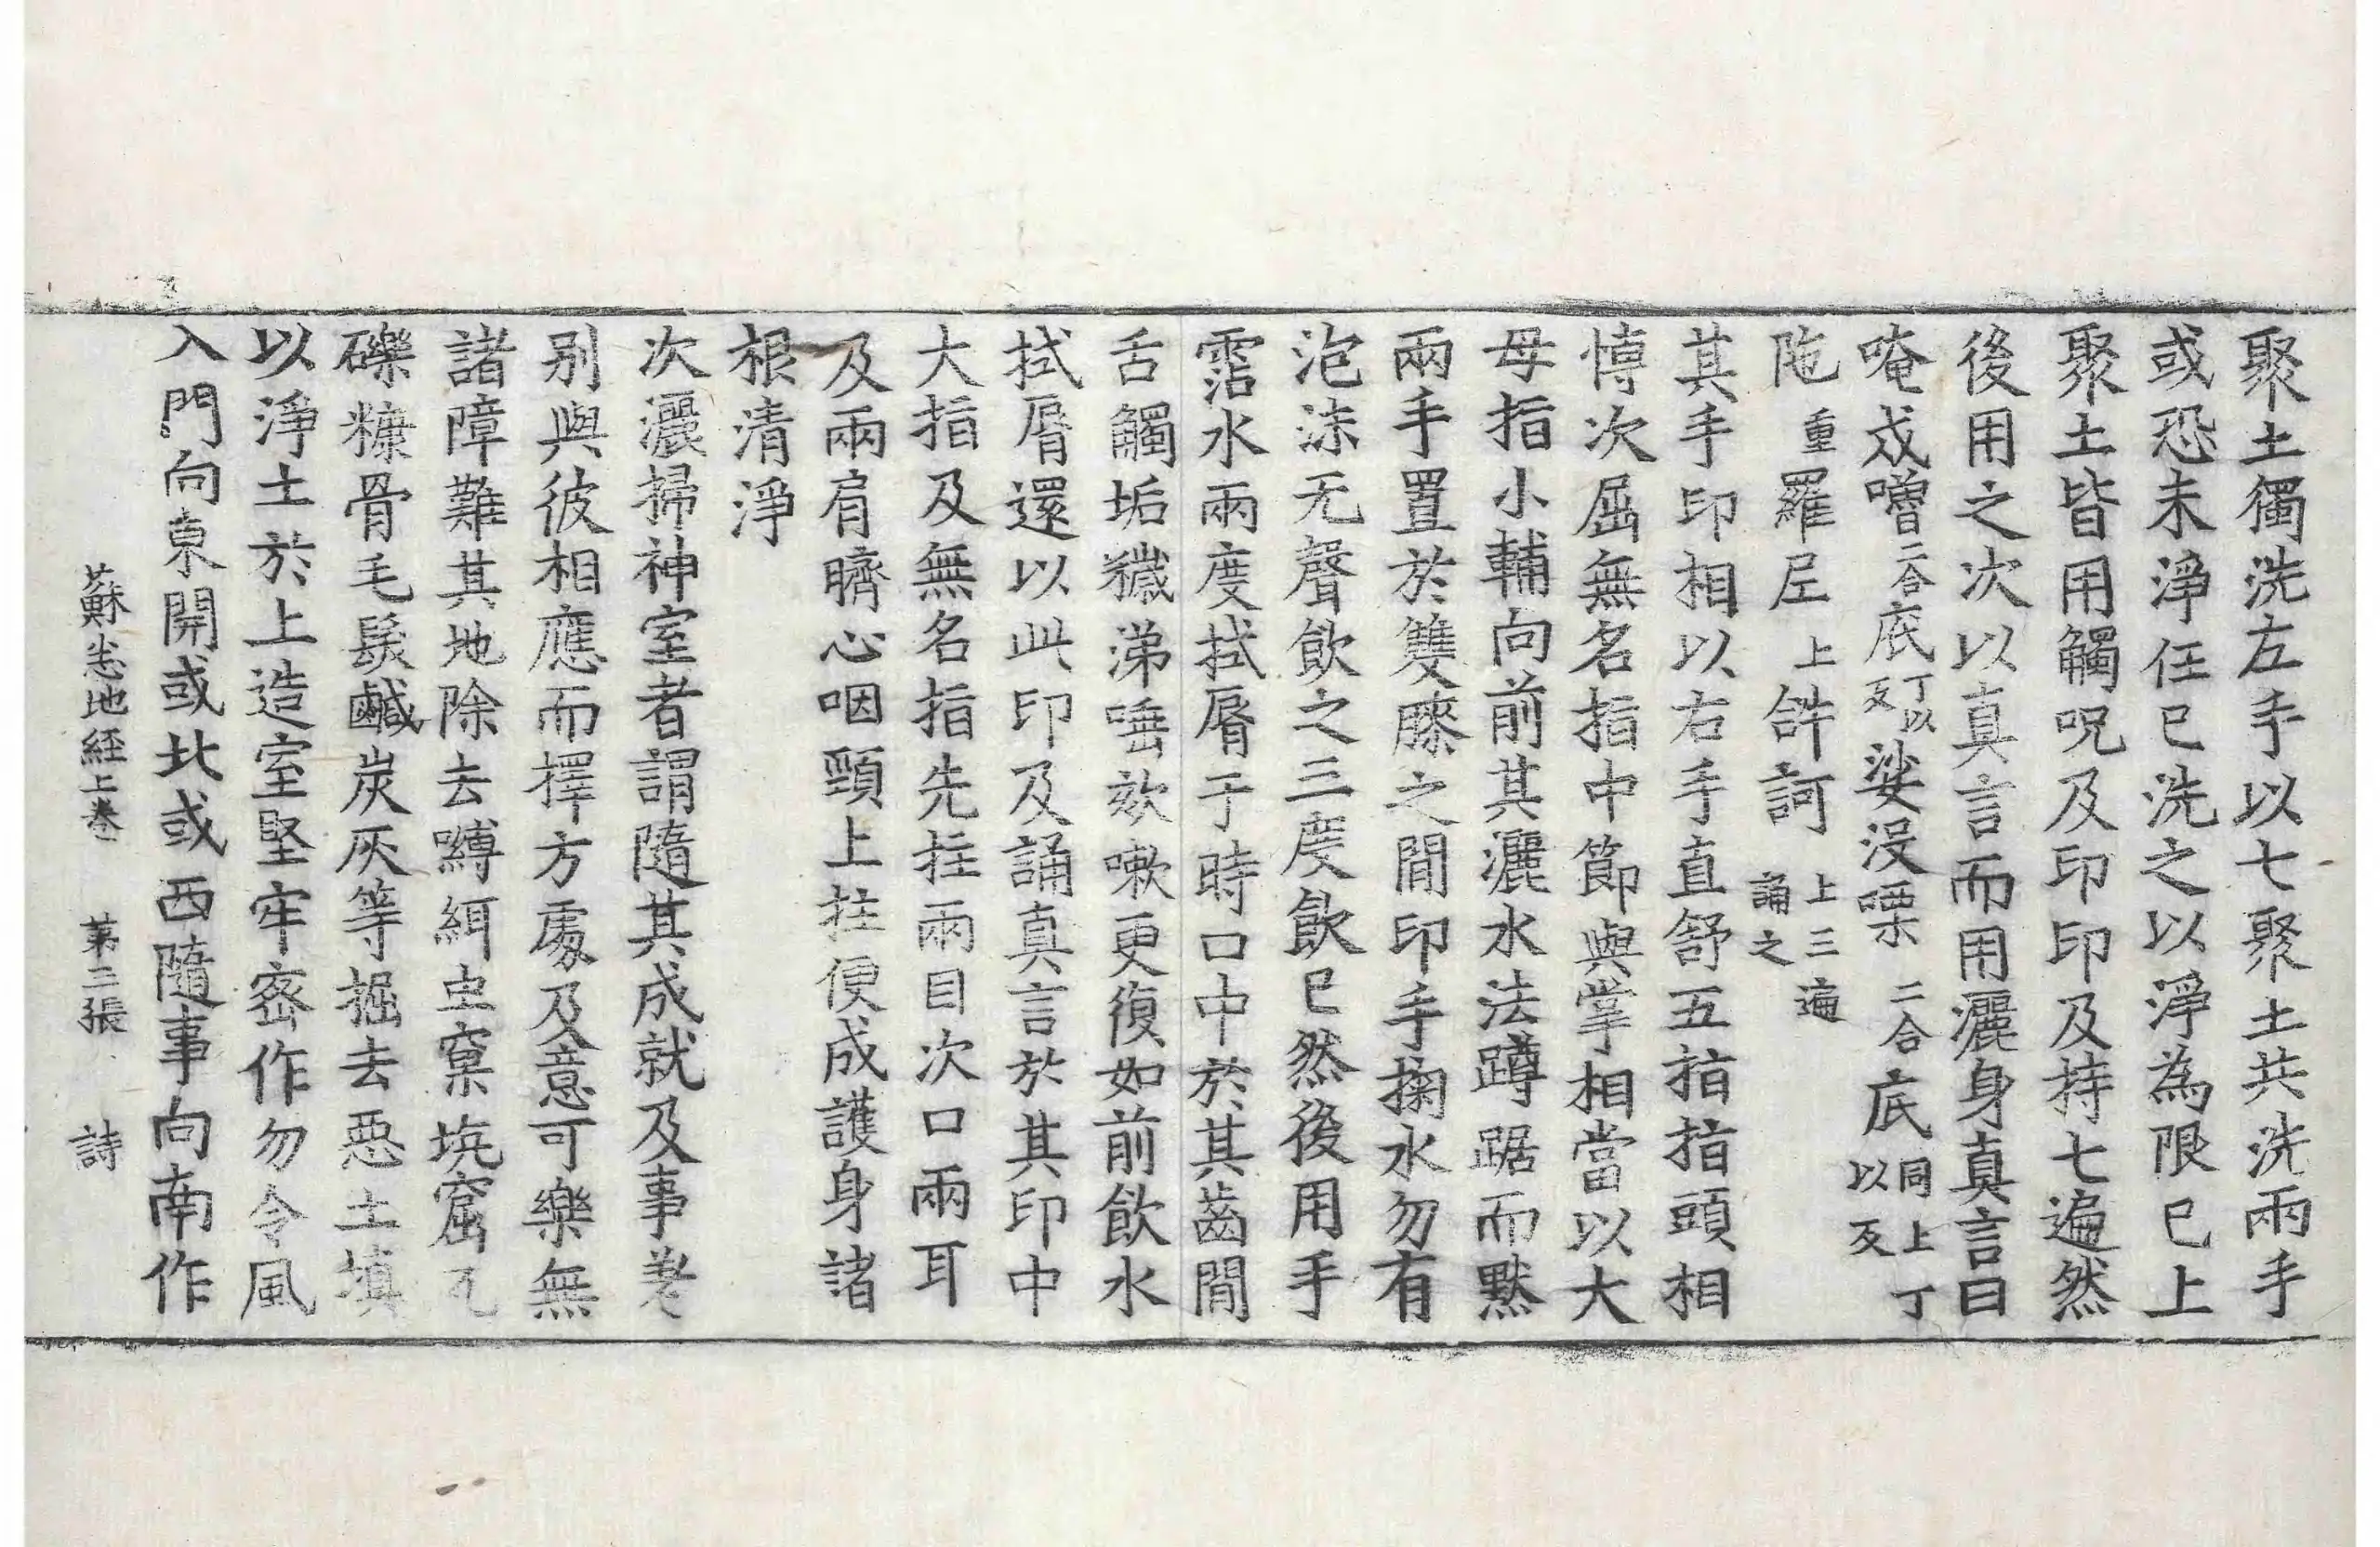 聚土獨洗左手以七聚土共洗兩手
或恐未淨任已洗之以淨為限已上
聚土皆用觸呪及印印及持七遍然
後用之次以真言而用灑身真言曰
唵戍嚕二合底丁以反娑没㗚二合底同上丁以反
陁重羅𡰱上𤙖訶上三遍誦之
其手印相以右手直舒五指指頭相
愽次屈無名指中節與掌相當以大
母指小輔向前其灑水法蹲踞而黙
兩手置於雙膝之間印手掬水勿有
泡沫无聲飲之三度飲已然後用手
霑水兩度拭脣于時口中於其齒間
舌觸垢穢涕唾欬嗽更復如前飲水
拭脣還以此印及誦真言於其印中
大指及無名指先拄兩目次口兩耳
及兩肩臍心咽頸上拄便成護身諸
根清淨
次灑掃神室者謂隨其成就及事差
别與彼相應而擇方處及意可樂無
諸障難其地除去䗚𧊕虫窠坑窟孔
礫糠骨毛髮鹹炭灰等掘去惡土填
以淨土於上造室堅牢密作勿令風
入門向東開或北或西隨事向南作
蘇悉地経上卷 第三張 詩